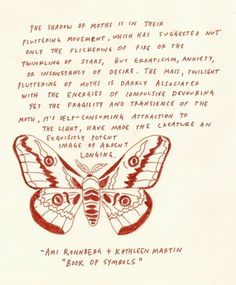 THE SHADOW OF MOTHS IS IN THEIR
FLUTTERING MOVEMENT, WHICH HAS SUGGESTED NOT
ONLY THE FLICKERING OF FIRE OR THE
TWINKLING OF STARS, BUT ERRATICISM, ANXIETY,
OR INCONSTANCY OF DESIRE. THE MASS, TWILIGHT
FLUTTERING OF MOTHS IS DARKLY ASSOCIATED
WITH THE ENERGIES OF COMPULSIVE DEVOURING
YET THE FRAGILITY AND TRANSIENCE OF THE
MOTH, IT'S SELF-CONSUMING ATTRACTION TO
THE LIGHT, HAVE MADE THE CREATURE AN
EXQUISITELY POTENT
IMAGE OF ARDENT
LONGING.
-AMI RONNBERG + KATHLEEN MARTIN
"BOOK OF SYMBOLS"